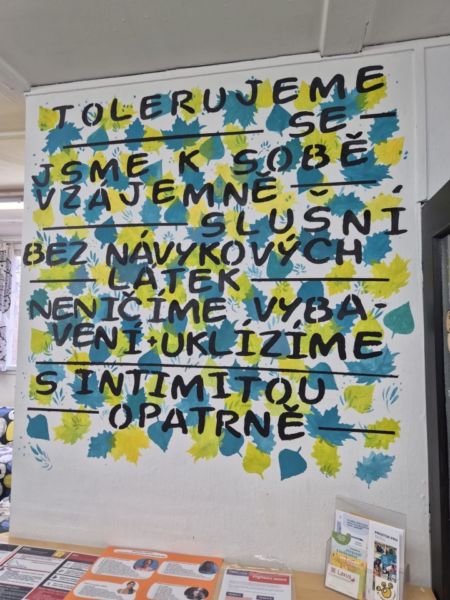 TOLERUJEME
SE
JSME K SOBĚ
VZÁJEMNĚ
SLUŠNÍ
BEZ NÁVYKOVÝCH
LÁTEK
NENIČÍME VYBA-
VENÍ·UKLÍZÍME
S INTIMITOU
OPATRNĚ